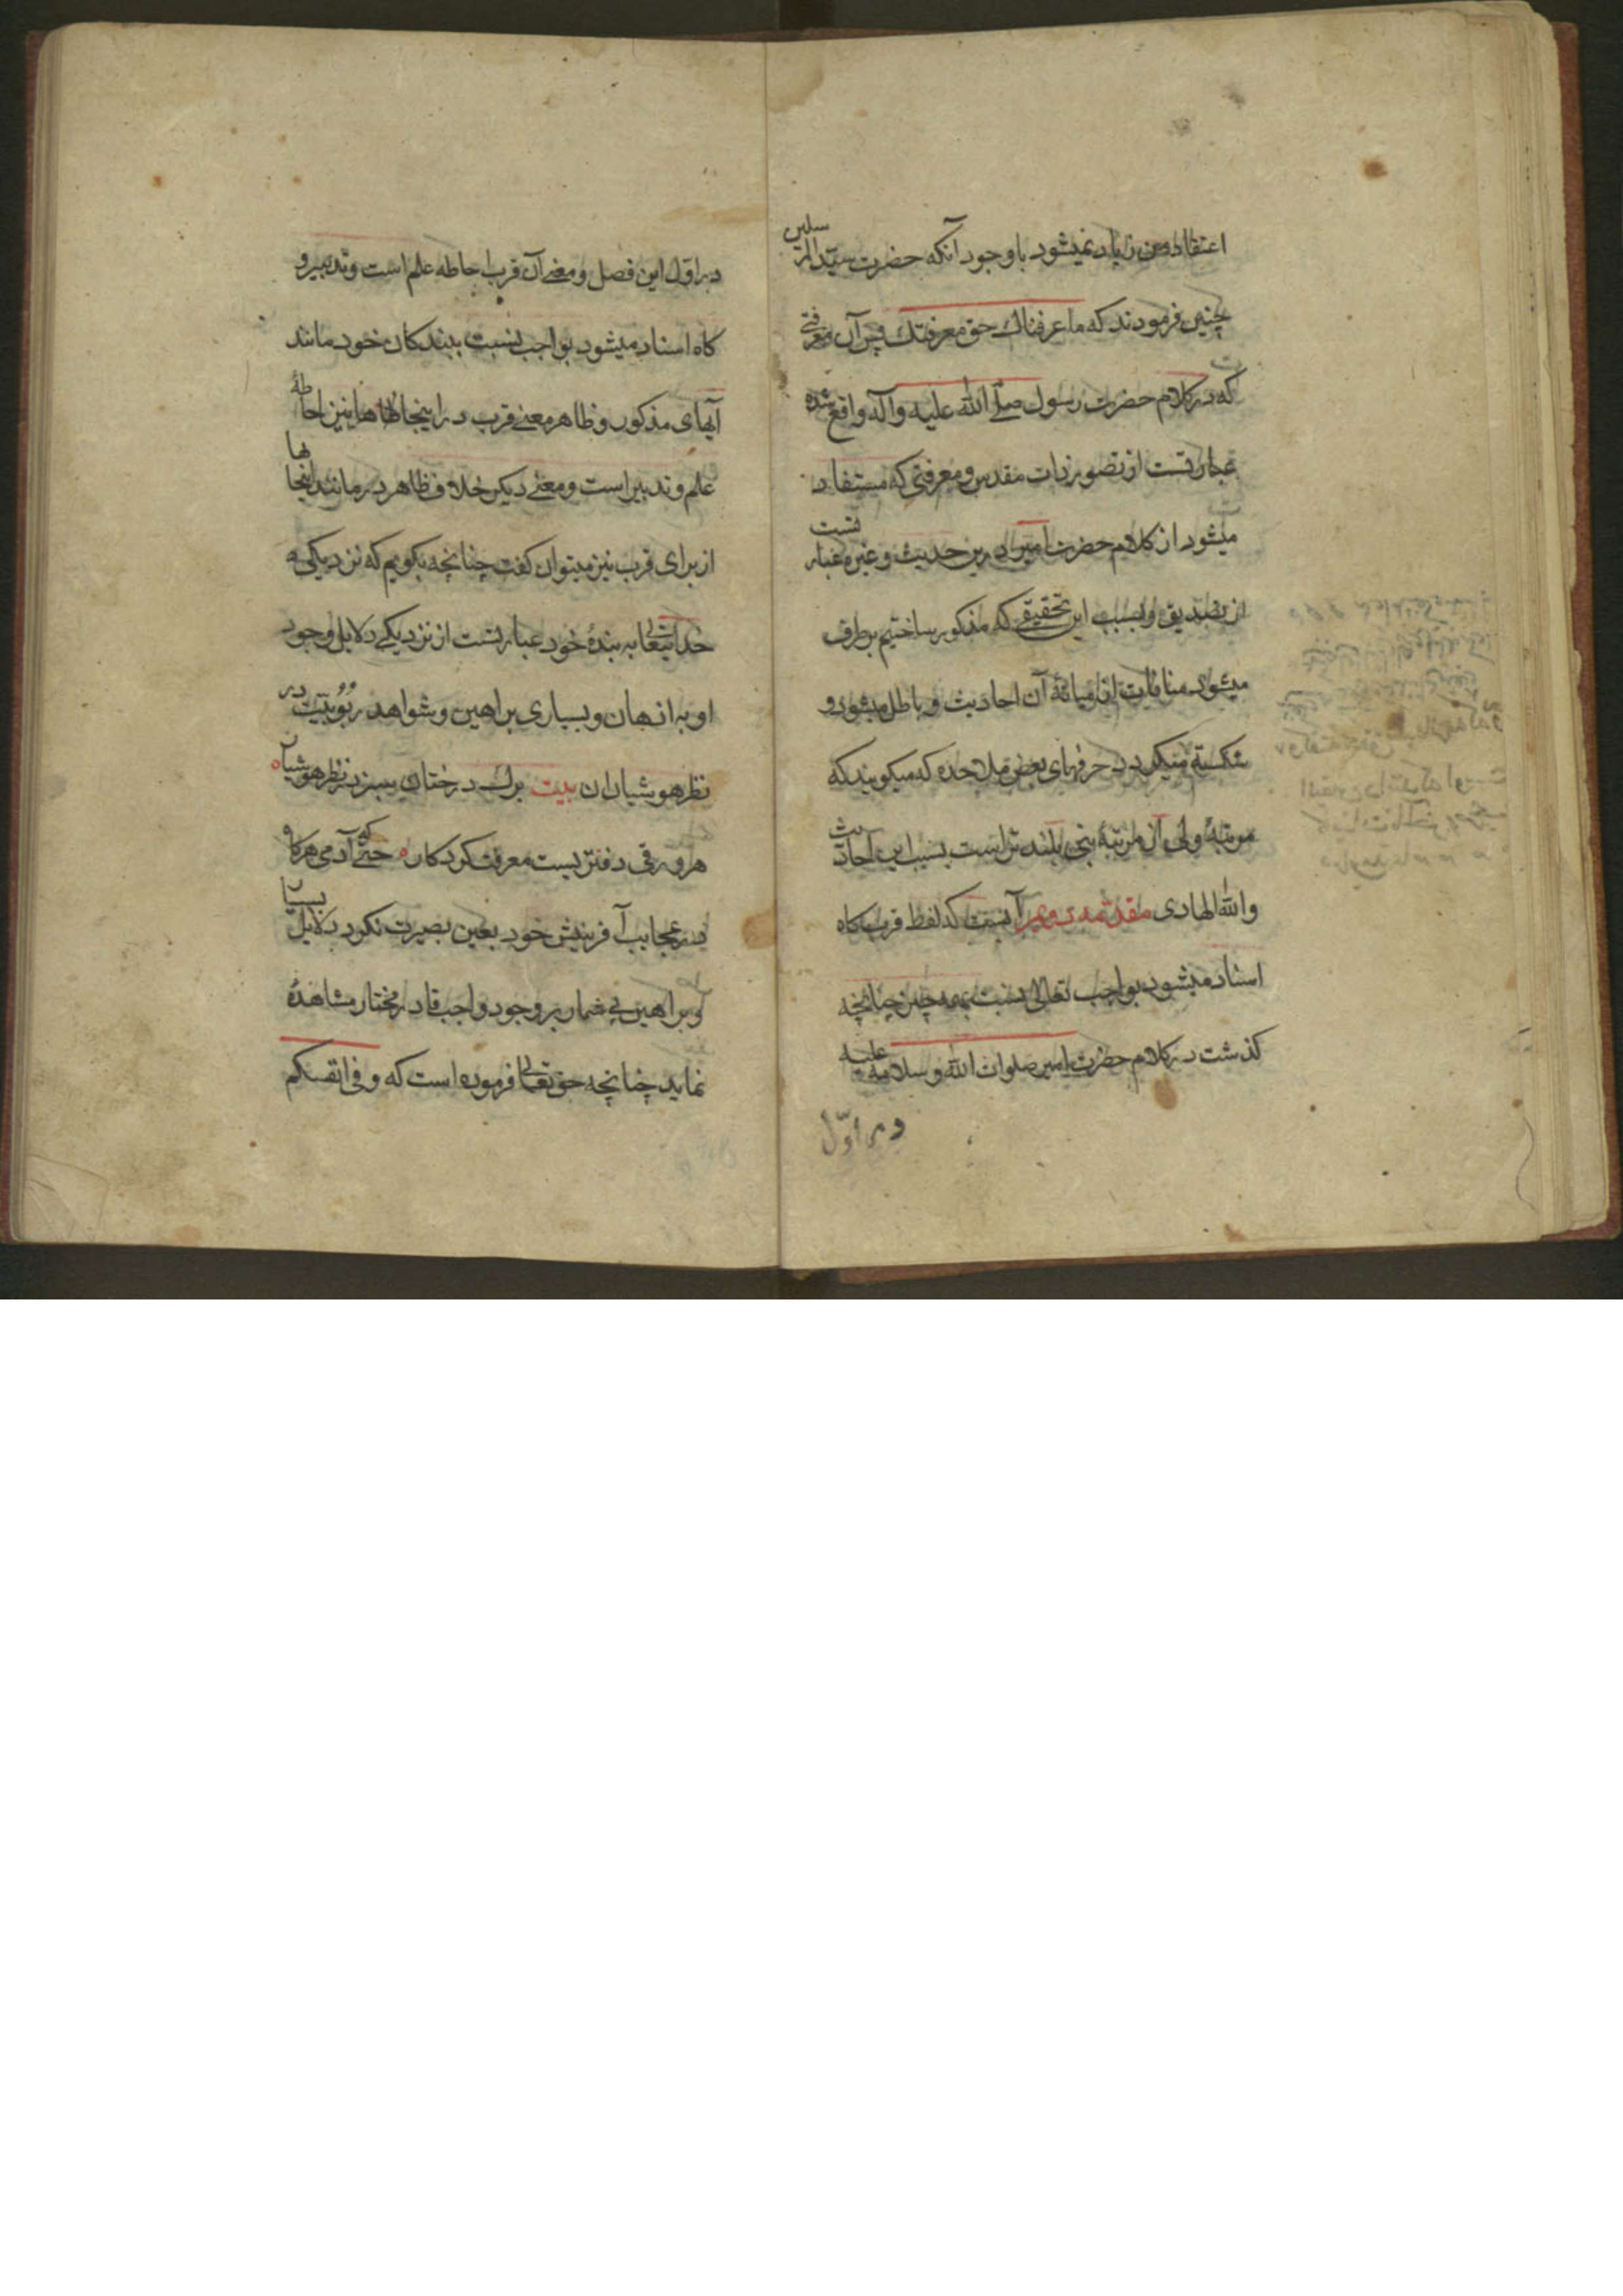 اعتقاد من زیاد نمیشود با وجود آنکه حضرت سیّد المرسلین
چنین فرمودند که ما عرفناک حق معرفتک پس آن معرفتی
که در کلام حضرت رسول صلّی الله علیه وآله واقع شده
عبارتست از تصور ذات مقدس و معرفتی که مستفاد
میشود از کلام حضرت امیر درین حدیث و غیره عبارتست
از تصدیق و بسبب این تحقیقی که مذکور ساختیم برطرف
میشود منافات از میانهٔ آن احادیث و باطل میشود و
شکسته میگردد حرفهای بعض ملاحده که میکویند که
مرتبهٔ ولی از مرتبهٔ نبی بلند تر است بسبب این احادیث
والله الهادی مقدمه دویم آنست که لفظ قرب کاه
اسناد میشود بواجب تعالی نسبت بهمه چیز چنانچه
کذشت در کلام حضرت امیر صلوات الله وسلامه علیه
در اوّل
در اوّل این فصل و معنی آن قرب احاطه علم است و تدبیر و
کاه اسناد میشود بواجب نسبت ببندکان خود مانند
آیهای مذکور و ظاهر معنی قرب در اینجاها نیز احاطهٔ
علم و تدبیر است و معنی دیکر خلاف ظاهر در مانند اینجاها
از برای قرب نیز میتوان کفت چنانچه بکویم که نزدیکی
خدایتعالی به بندهٔ خود عبارتست از نزدیکی دلایل وجود
او به اذهان و بسیاری براهین و شواهد ربوبیّت در
نظر هوشیاران بیت برک درختان سبز در نظر هوشیار
هر ورقی دفتریست معرفت کردکار که حتّی آدمی هرکاه
در عجایب آفرینش خود بعین بصیرت نکرد دلایل بسیار
و براهین بی شمار بر وجود واجب قادر مختار مشاهدهٔ
نماید چنانچه حق تعالی فرموده است که و فی انفسکم